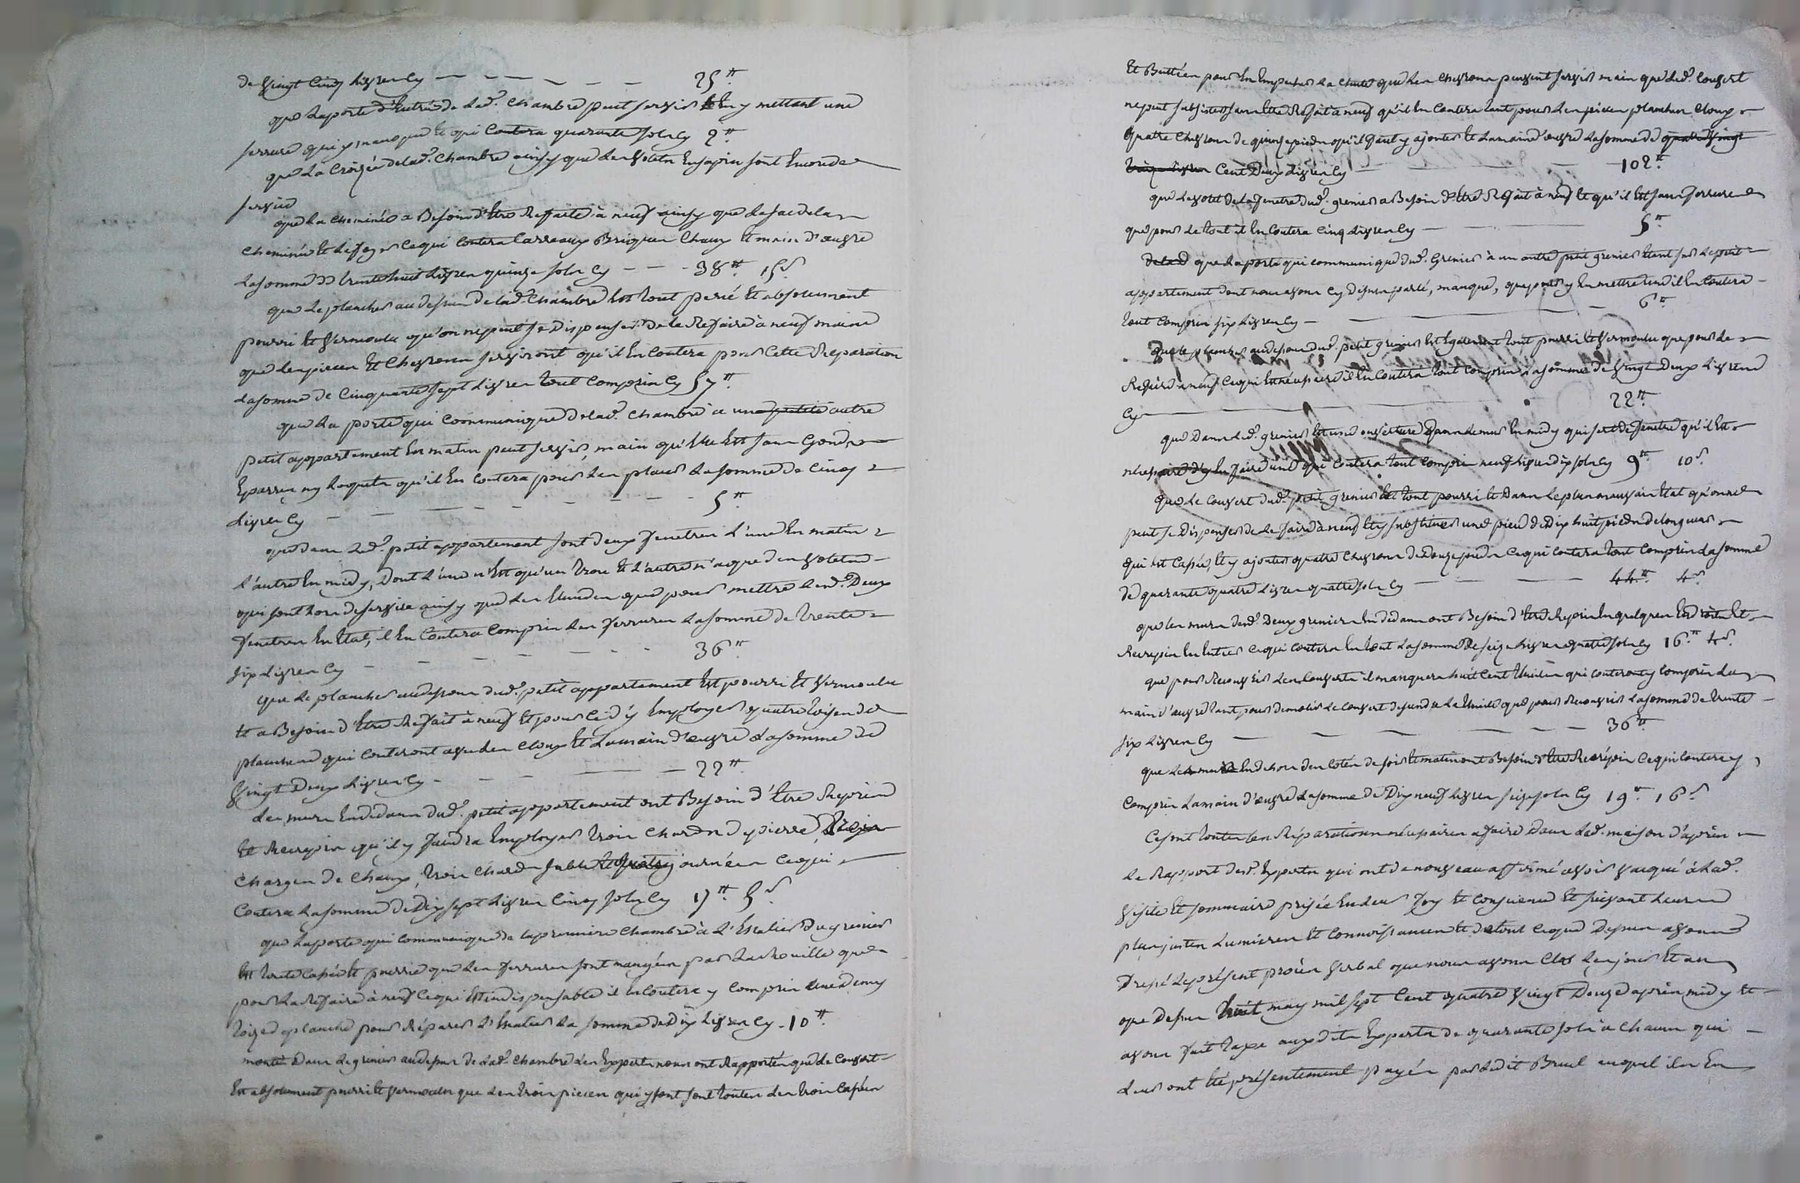 de vingt cinq livres cy — — — — — — 25ᵗᵗ
que la porte d'entrée de lad.ᵉ chambre peut servir En y mettant une
serrure qui y manque et qui coutera quarante sols cy 2ᵗᵗ
que la croizée de lad.ᵉ chambre ainsy que les volets En sapin sont En ordre
servir
que la cheminée a Besoin d'être Reffaite à neuf ainsy que le sac de la
cheminée et le foyer ce qui coutera carreaux Briques chaux et main d'œuvre
la somme de trente huit livres quinze sols cy — — - 38ᵗᵗ 15ˢ
que le plancher au dessus de lad.ᵉ chambre Est tout percé Et absolument
pourri Et vermoulu qu'on ne peut se dispenser de le Refaire à neuf mais
que les pieces Et chevrons serviront qu'il En coutera pour cette Reparation
la somme de cinquante sept livres tout compris cy 57ᵗᵗ
que la porte qui communique de lad.ᵉ chambre à un autre
petit appartement En matin peut servir, mais qu'elle Est sans gonds
Eparres ny loquets qu'il En coutera pour les placer la somme de cinq
livres cy — — — — — — — 5ᵗᵗ
que dans led.ᵗ petit appartement sont deux fenetres l'une En matin
l'autre En midy, dont l'une n'Est qu'un trou Et l'autre n'a que des volets
qui sont hors de service ainsy que les que pour mettre lesd. Deux
fenetres En Etat, il En coutera compris les ferrures la somme de trente
six livres cy — — — — — — 36ᵗᵗ
que le plancher au dessous dud. petit appartement Est pourri Et vermoulu
et a Besoin d'Etre Refait à neuf Et pour ce d'y Employer quatre toises de
planches qui couteront avec les cloux Et la main d'œuvre la somme de
vingt Deux livres cy - — — — 22ᵗᵗ
les murs En dedans dud. petit appartement ont Besoin d'être Repris
Et Recrepis qu'il y faudra Employer trois chards de pierre, trois
charges de chaux, trois chards sable Et journées ce qui
coutera la somme de Dix sept livres cinq sols cy 17ᵗᵗ 5ˢ
que la porte qui communique de la premiere chambre à l'Escalier du grenier
Est toute cassée Et pourrie que les ferrures sont mangées par la Rouille que
pour la Refaire à neuf ce qui Est indispensable il En coutera y compris une demy
toize de planche pour Réparer l'Escalier la somme de Dix livres cy - 10ᵗᵗ
montés Dans le grenier au dessus de lad.ᵉ chambre les Experts nous ont Rapportés que le couvert
Est absolument pourri Et vermoulu que les trois pieces qui y sont sont toutes les trois cassées
Et Buttées pour En Empecher la chute que les chevrons peuvent servir mais que led.ᵗ couvert
ne peut subsister sans être Refait à neuf qu'il En coutera tant pour les pieces planches cloux
quatre chevrons de quinze pieds qu'il faut y ajouter Et la main d'œuvre la somme de quatre vingt
cent Deux livres cy — 102ᵗᵗ
que le volet de la fenetre dud. grenier a Besoin d'être Refait à neuf Et qu'il Est sans serrure
que pour le tout il En coutera cinq livres cy — — 5ᵗᵗ
que la porte qui communique dud. grenier à un autre petit grenier Etant sur le petit
appartement dont nous avons cy dessus parlé, manque, que pour y En mettre une il En coutera
tout compris six livres cy — — — — 6ᵗᵗ
que le plancher au dessous dud. petit grenier Est Egalement tout pourri Et vermoulu que pour le
Refaire à neuf ce qui Est nécessaire il En coutera tout compris la somme de vingt Deux livres
cy — — — 22ᵗᵗ
que Dans led. grenier Est une ouverture Dans le mur En midy qui sert de fenetre qu'il Est
necessaire d'y En faire une qui coutera tout compris neuf livres dix sols cy 9ᵗᵗ 10ˢ
que le couvert dud. petit grenier Est tout pourri Et Dans le plus mauvais Etat qu'on ne
peut se Dispenser de le faire à neuf Et y substituer une piece de Dix huit pieds de longueur
qui Est cassée, Et y ajouter quatre chevrons de Douze pieds ce qui coutera tout compris la somme
de quarante quatre livres quatre sols cy — — — 44ᵗᵗ 4ˢ
que les murs desd.ˢ Deux greniers En dedans ont Besoin d'être Repris En quelques Endroits Et
Recrepis En Entier ce qui coutera En tout la somme de seize livres quatre sols cy 16ᵗᵗ 4ˢ
que pour Recouvrir les couverts il manquera huit cent tuiles qui couteront y compris la
main d'œuvre tant pour demolir le couvert que pour Recouvrir la somme de trente
six livres cy — — — — — 36ᵗᵗ
que les murs En dehors des cotés de soir Et matin ont Besoin d'être Recrépis ce qui coutera y
compris la main d'œuvre la somme de Dix neuf livres seize sols cy 19ᵗᵗ 16ˢ
Ce sont toutes les Réparations nécessaires à faire Dans lad. maison d'après
le Rapport desd.ˢ Experts qui ont de nouveau affirmé avoir vacqué à lad.ᵉ
visite Et sommaire prisée En leur foy Et conscience Et suivant leurs
plus justes lumieres Et connoissances Et de tout ce que Dessus avons
Dressé le présent procès verbal que nous avons clos les jour Et an
que Dessus huit may mil sept cent quatre vingt Douze après midy Et
avons fait taxe auxdits Experts de quarante sols à chacun qui
leur ont été présentement payés par ledit Bruel auquel ils En